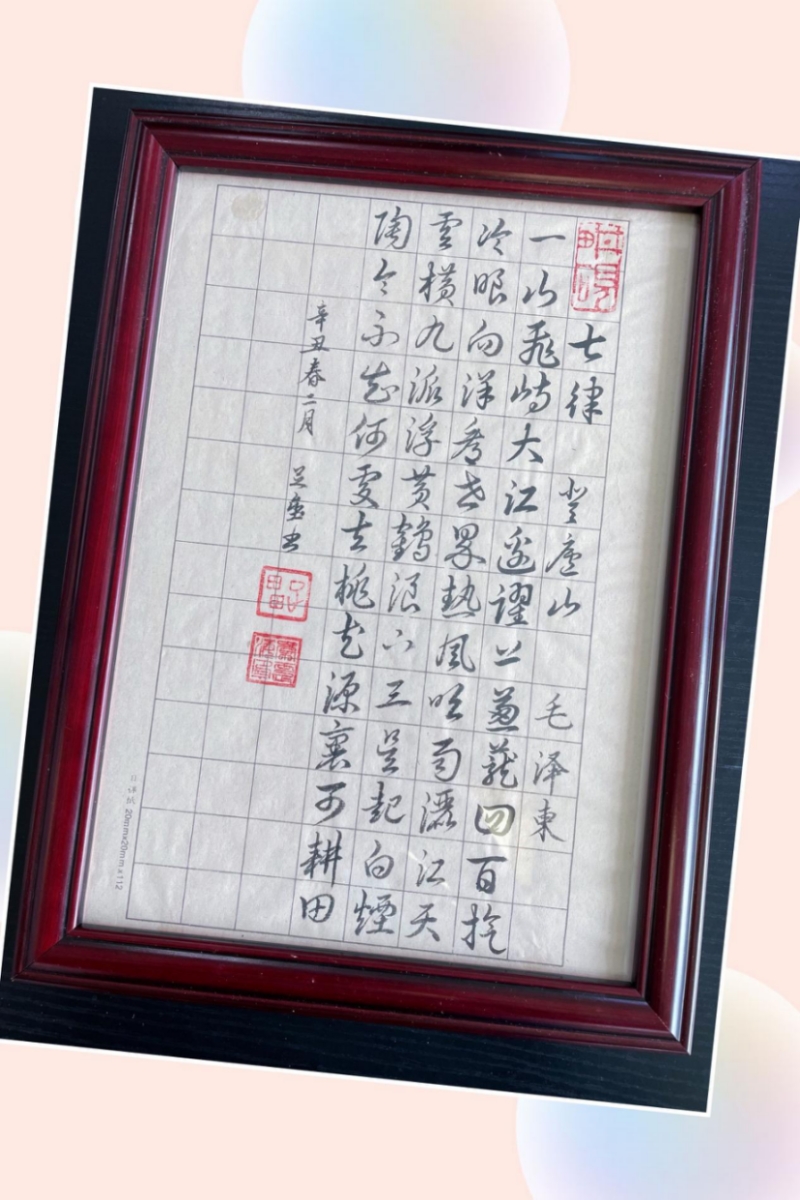 七律 登廬山 毛泽東
一山飛峙大江邊躍上蔥蘢四百旋
冷眼向洋看世界熱風吹雨灑江天
雲橫九派浮黄鶴浪下三吴起白煙
陶令不知何處去桃花源裏可耕田
辛丑春二月 书
20mm×20mm×112